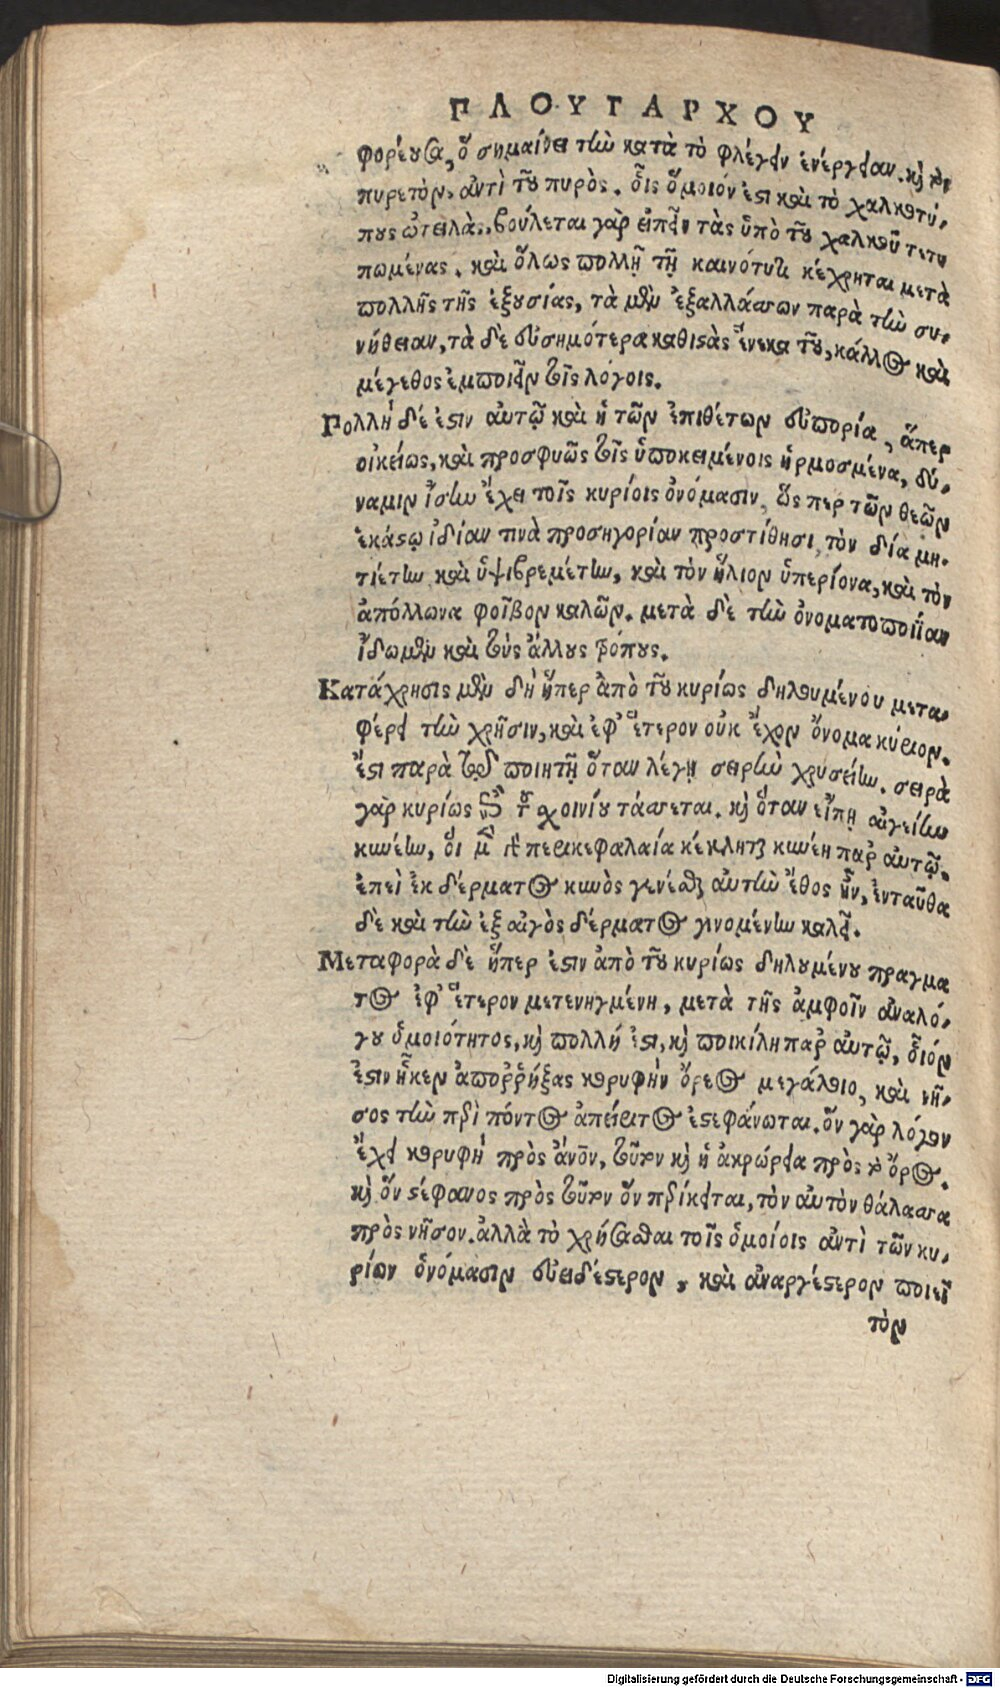 ΠΛΟΥΤΑΡΧΟΥ
φορέουσα, ὃ σημαίνει τὴν κατὰ τὸ φλέγειν ἐνέργειαν. καὶ τὸν
πυρετὸν, ἀντὶ τοῦ πυρὸς. οἷς ὅμοιόν ἐστι καὶ τὸ χαλκοτύ-
πους ὠτειλὰς, βούλεται γὰρ εἰπεῖν τὰς ὑπὸ τοῦ χαλκοῦ τετυ
πωμένας. καὶ ὅλως πολλῇ τῇ καινότητι κέχρηται μετὰ
πολλῆς τῆς ἐξουσίας, τὰ μὲν ἐξαλλάσσων παρὰ τὴν συ-
νήθειαν, τὰ δὲ εὐσημότερα καθιστὰς ἕνεκα τοῦ, κάλλος καὶ
μέγεθος ἐμποιεῖν τοῖς λόγοις.
Πολλὴ δέ ἐστιν αὐτῷ καὶ ἡ τῶν ἐπιθέτων εὐπορία, ἅπερ
οἰκείως, καὶ προσφυῶς τοῖς ὑποκειμένοις ἡρμοσμένα, δύ-
ναμιν ἴσην ἔχει τοῖς κυρίοις ὀνόμασιν, ὥς περ τῶν θεῶν
ἑκάστῳ ἰδίαν τινὰ προσηγορίαν προστίθησι, τὸν δία μη-
τιέτην καὶ ὑψιβρεμέτην, καὶ τὸν ἥλιον ὑπερίονα, καὶ τὸν
ἀπόλλωνα φοῖβον καλῶν. μετὰ δὲ τὴν ὀνοματοποιΐαν
ἴδωμεν καὶ τοὺς ἄλλους τρόπους.
Κατάχρησις μὲν δὴ ἥπερ ἀπὸ τοῦ κυρίως δηλουμένου μετα-
φέρει τὴν χρῆσιν, καὶ ἐφ' ἕτερον οὐκ ἔχον ὄνομα κύριον.
ἔστι παρὰ τῷ ποιητῇ ὅταν λέγῃ σειρὴν χρυσείην. σειρὰ
γὰρ κυρίως ἐπὶ τοῦ σχοινίου τάσσεται. καὶ ὅταν εἴπῃ αἰγείην
κυνέην, ὅτι μὲν ἡ περικεφαλαία κέκληται κυνέη παρ' αὐτῷ.
ἐπεὶ ἐκ δέρματος κυνὸς γενέσθαι αὐτὴν ἔθος ἦν, ἐνταῦθα
δὲ καὶ τὴν ἐξ αἰγὸς δέρματος γινομένην καλεῖ.
Μεταφορὰ δὲ ἥπερ ἐστὶν ἀπὸ τοῦ κυρίως δηλουμένου πραγμα
τος ἐφ' ἕτερον μετενηγμένη, μετὰ τῆς ἀμφοῖν ἀναλό-
γου ὁμοιότητος, καὶ πολλή ἐστι, καὶ ποικίλη παρ' αὐτῷ, οἷόν
ἐστιν ἧκεν ἀποῤῥήξας κορυφὴν ὄρεος μεγάλοιο, καὶ νῆ-
σος τὴν περὶ πόντος ἀπείριτος ἐστεφάνωται. ὃν γὰρ λόγον
ἔχει κορυφὴ πρὸς ἄνθρωπον, τοῦτον καὶ ἡ ἀκρώρεια πρὸς τὸ ὄρος.
καὶ ὃν στέφανος πρὸς τοῦτον ὃν περίκειται, τὸν αὐτὸν θάλασσα
πρὸς νῆσον. ἀλλὰ τὸ χρῆσθαι τοῖς ὁμοίοις ἀντὶ τῶν κυ-
ρίων ὀνόμασιν εὐειδέστερον, καὶ ἀναργέστερον ποιεῖ
τὸν
Digitalisierung gefördert durch die Deutsche Forschungsgemeinschaft - DFG